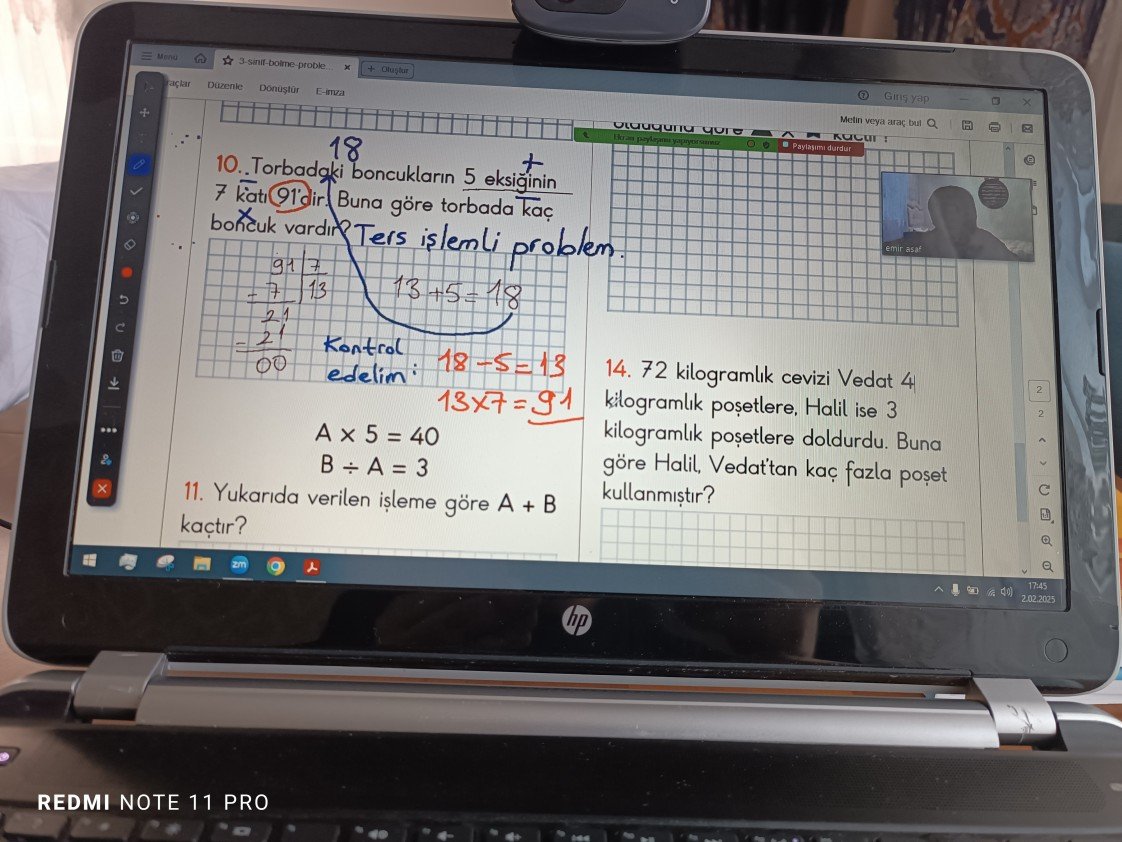 Menü
3-sinif-bolme-proble...
Oluştur
Giriş yap
açlar Düzenle Dönüştür E-imza
Metin veya araç bul
olduğuna göre
kaçtır?
Ekran paylaşımı yapıyorsunuz
Paylaşımı durdur
18
+
10. Torbadaki boncukların 5 eksiğinin
7 katı 91'dir. Buna göre torbada kaç
boncuk vardır? Ters işlemli problem.
emir asaf
91 7
- 7 13
21
- 21
00
13+5=18
Kontrol
edelim:
18-5=13
13x7=91
A x 5 = 40
B ÷ A = 3
11. Yukarıda verilen işleme göre A + B
kaçtır?
14. 72 kilogramlık cevizi Vedat 4
kilogramlık poşetlere, Halil ise 3
kilogramlık poşetlere doldurdu. Buna
göre Halil, Vedat'tan kaç fazla poşet
kullanmıştır?
2
2
zm
17:45
2.02.2025
hp
REDMI NOTE 11 PRO